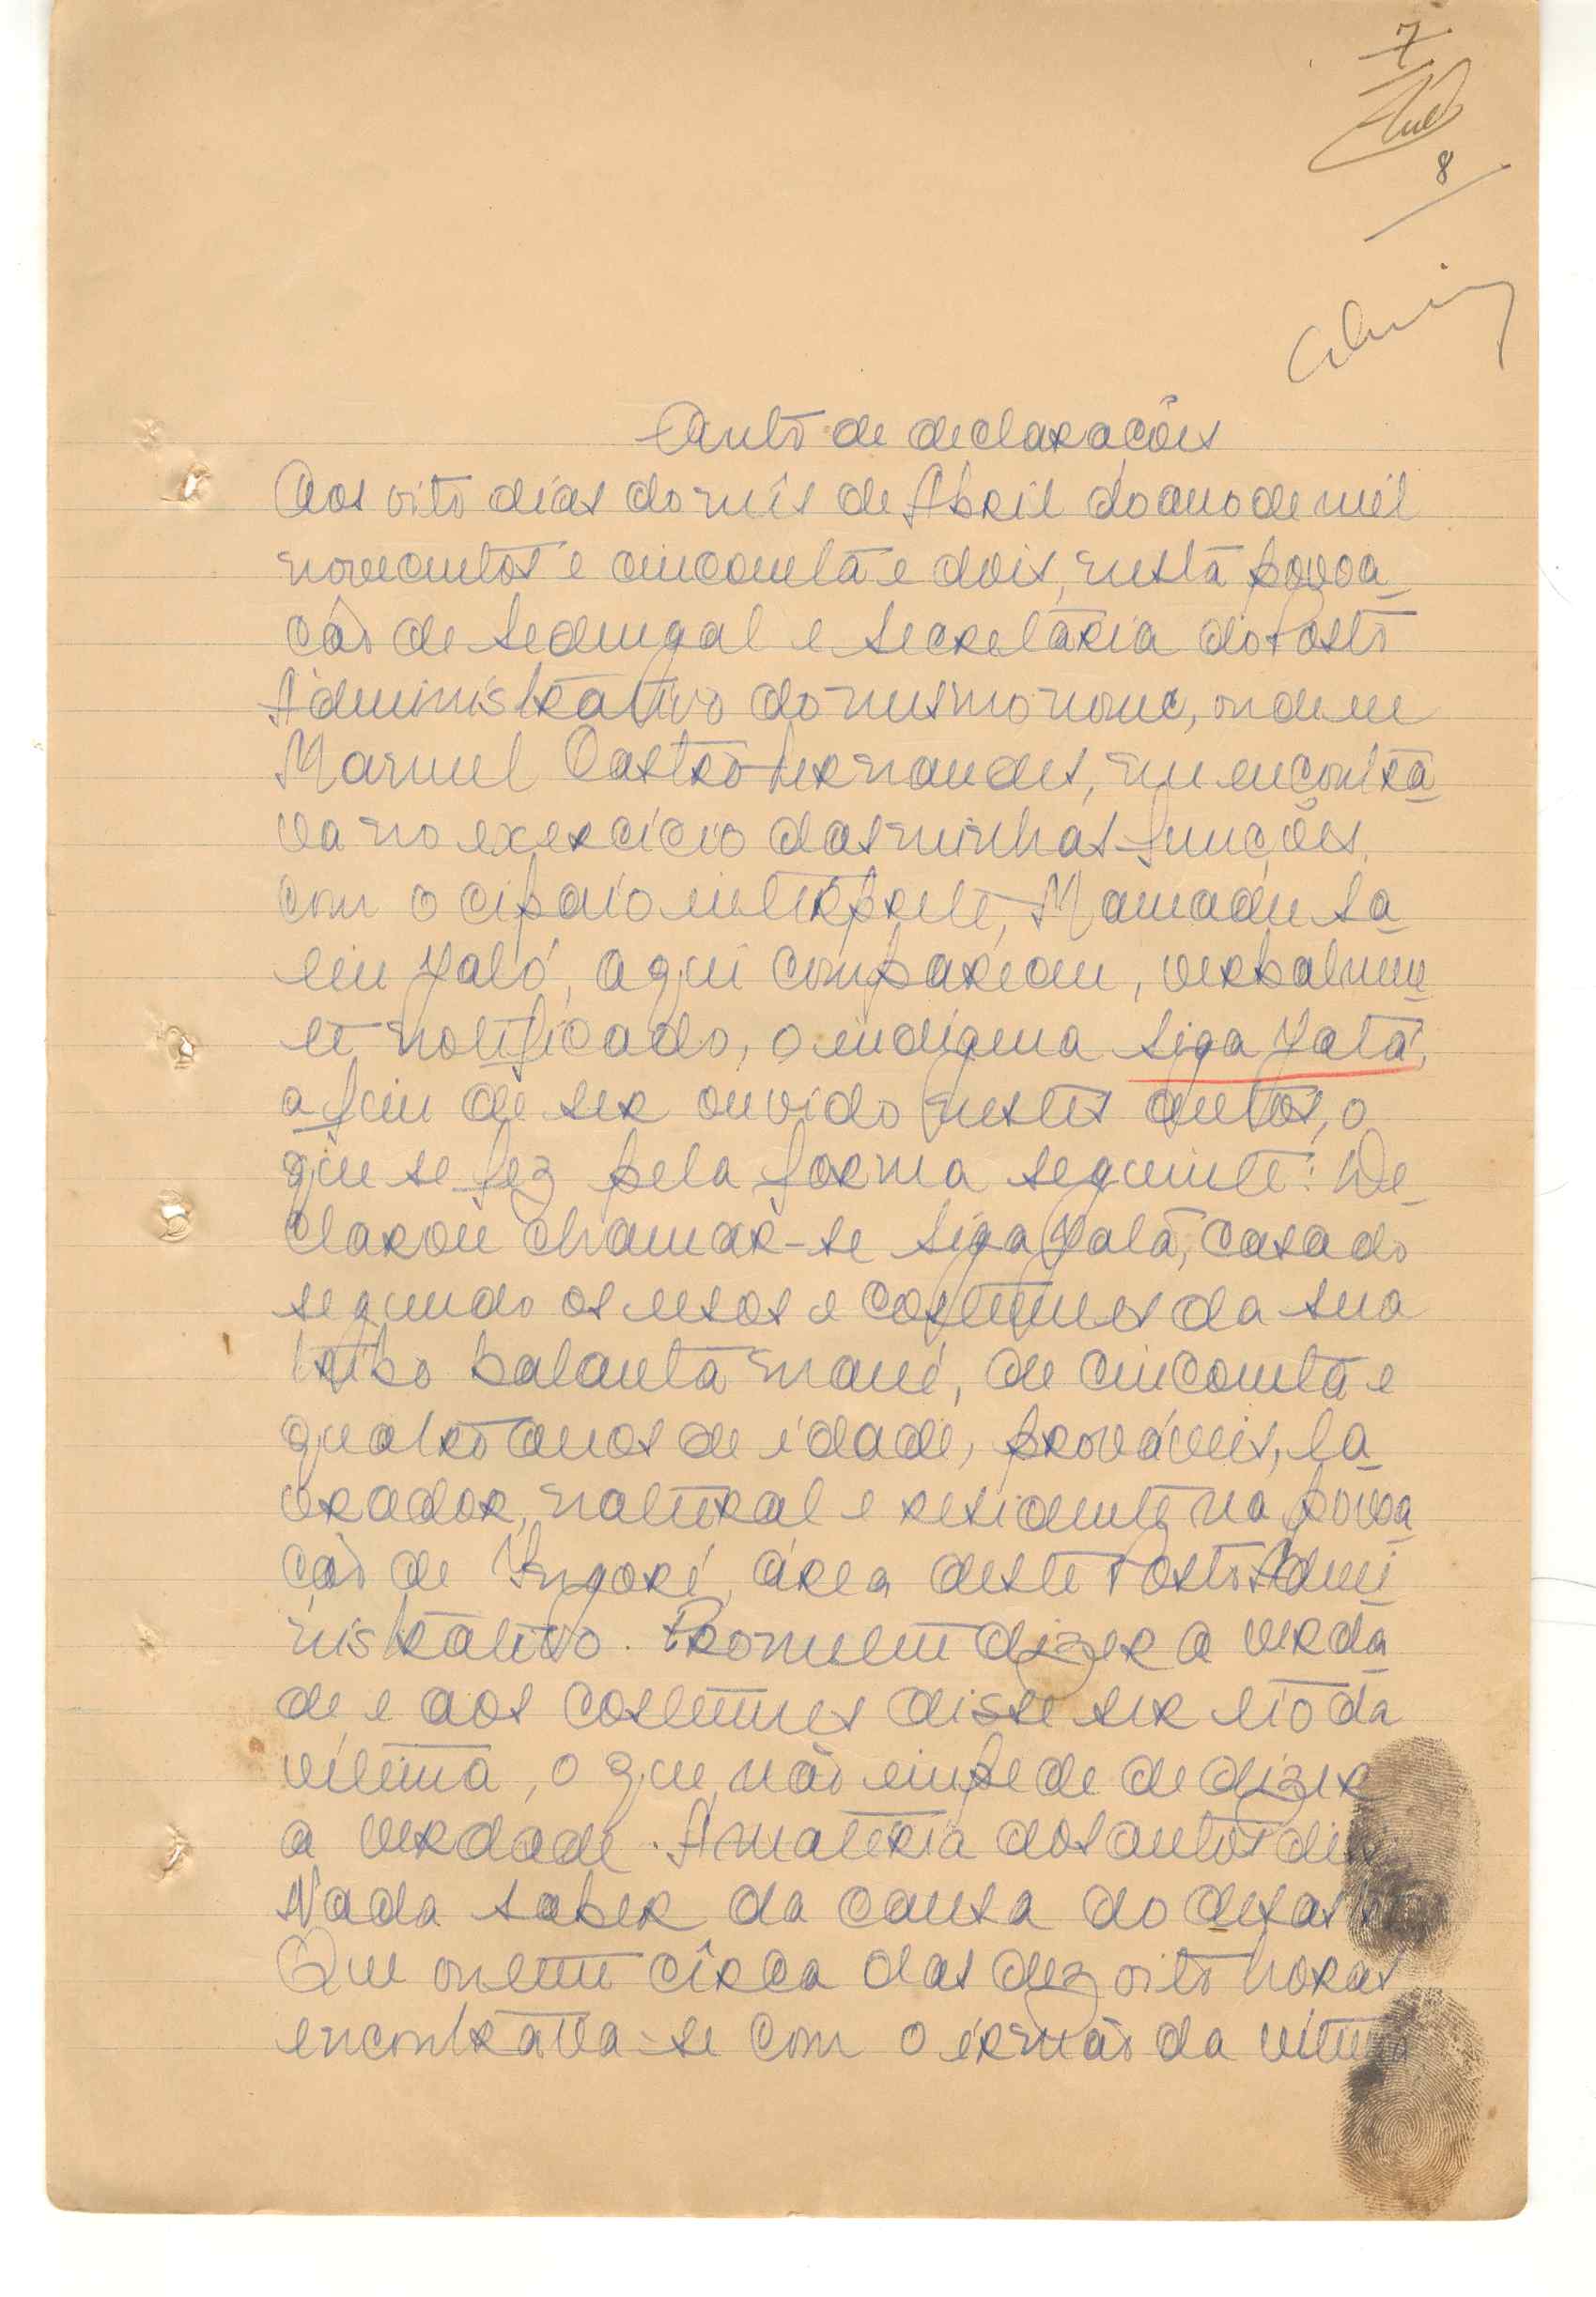 7
8
Auto de declarações
Aos oito dias do mês de Abril do ano de mil
novecentos e cincoenta e dois, nesta povoa
ção de Sedengal e Secretaria do Posto
Administrativo do mesmo nome, onde eu
Manuel Castro Fernandes, me encontra
va no exercicio das minhas funções
com o cipaio interprete, Mamadu Sa
liu Jaló, aqui compareceu, verbalmen
te notificado, o indigena Siga Jatá,
a fim de ser ouvido nestes autos, o
que se fez pela forma seguinte: De
clarou chamar-se Siga Jatá, casado
segundo os usos e costumes da sua
tribo balanta mané, de cincoenta e
quatro anos de idade, prováveis, la
vrador, natural e residente na povoa
ção de Ingoré, área deste Posto Admi
nistrativo. Prometeu dizer a verda
de e aos costumes disse ser tio da
vitima, o que não impede de dizer
a verdade. A materia dos autos diz
Nada saber da causa do desastre
Que ontem cêrca das dezoito horas
encontrava-se com o irmão da vitima